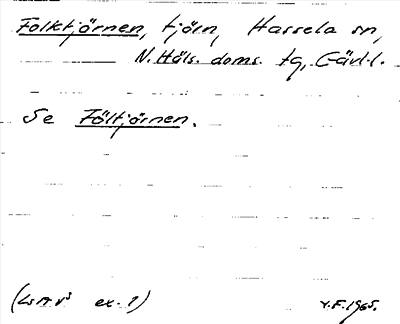 Folktjärnen, tjärn, Hassela sn,
N. Häls. doms. tg, Gävl.l.
Se Föltjärnen.
ex. 1)
Y.F. 1965.